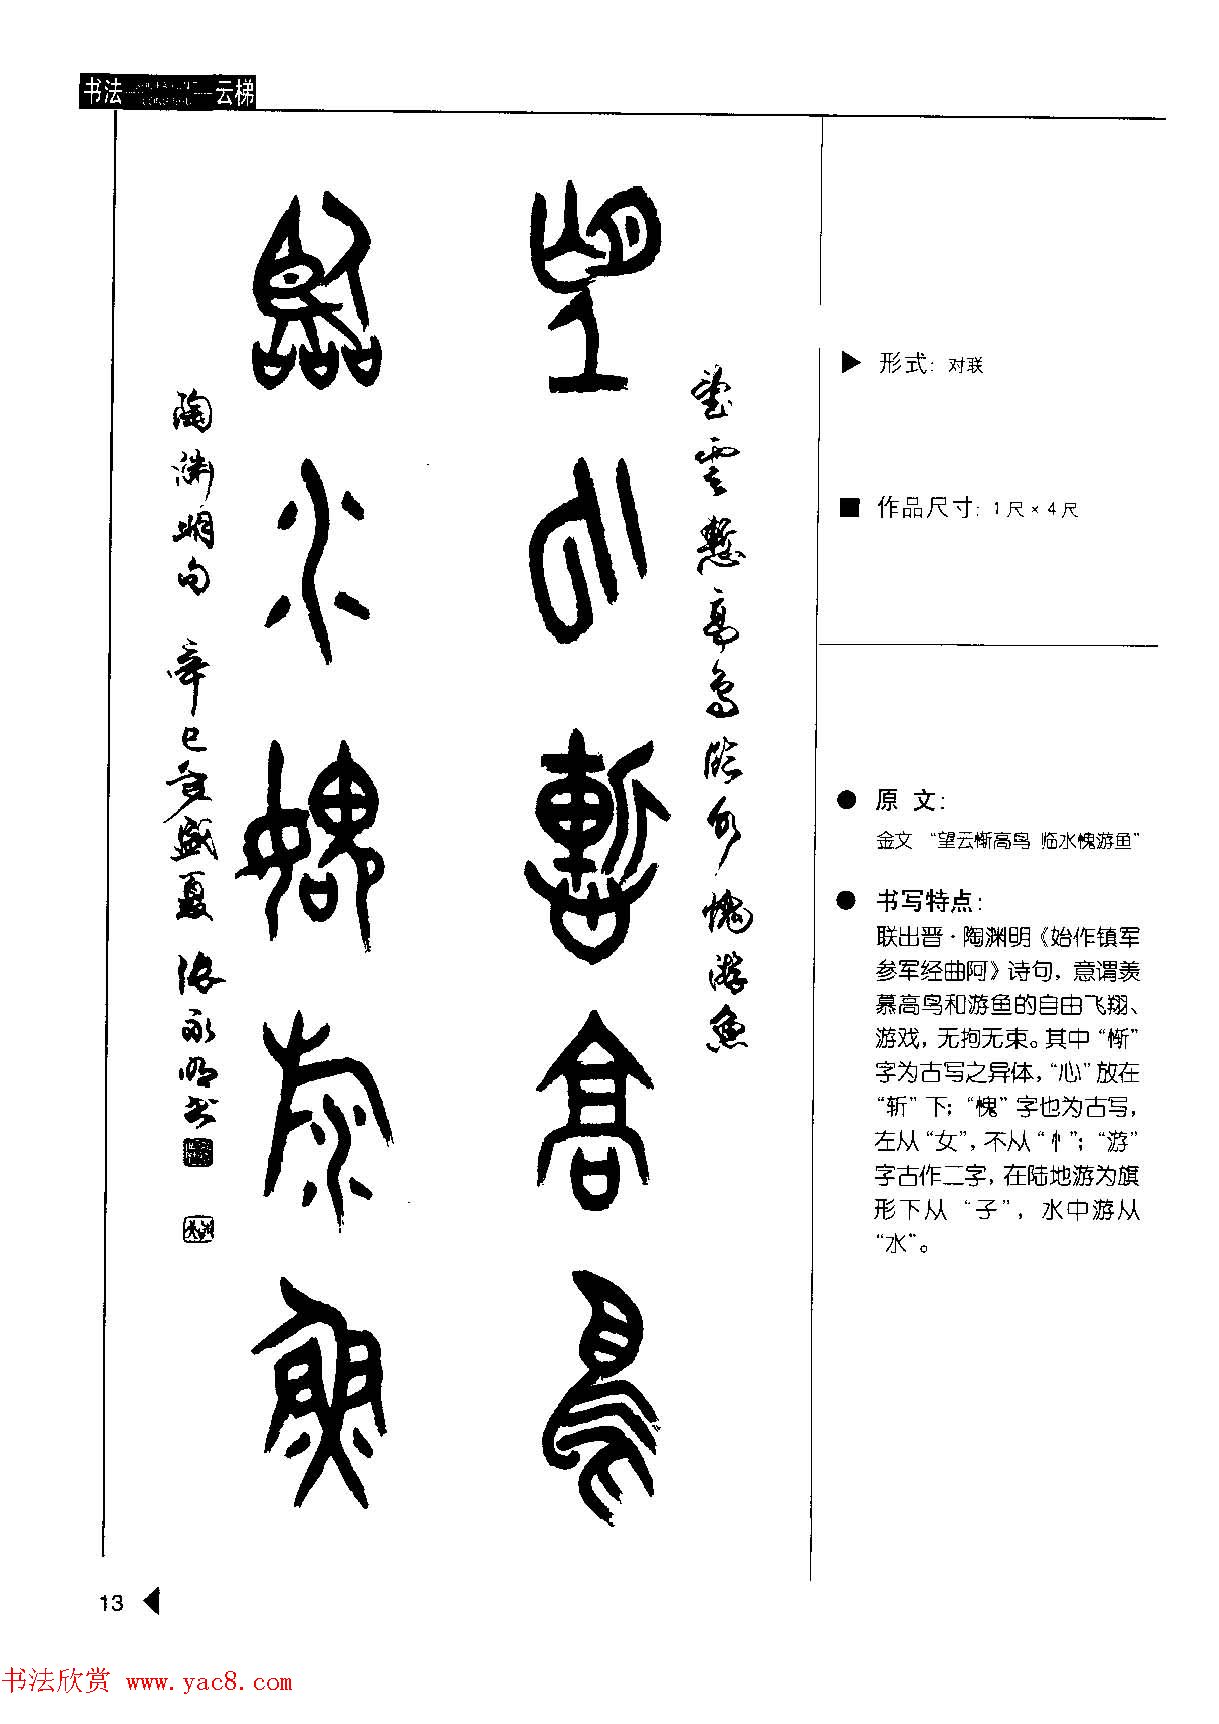 书法 云梯
望云慙高鸟
临水媿游鱼
望雲慙高鳥臨水愧游魚
陶渊明句 辛巳年盛夏 张永明书
▶ 形式：对联
■ 作品尺寸：1尺×4尺
● 原 文：
金文 “望云惭高鸟 临水愧游鱼”
● 书写特点：
联出晋·陶渊明《始作镇军
参军经曲阿》诗句，意谓羡
慕高鸟和游鱼的自由飞翔、
游戏，无拘无束。其中“惭”
字为古写之异体，“心”放在
“斩”下；“愧”字也为古写，
左从“女”，不从“忄”；“游”
字古作二字，在陆地游为旗
形下从“子”，水中游从
“水”。
13
书法欣赏 www.yac8.com